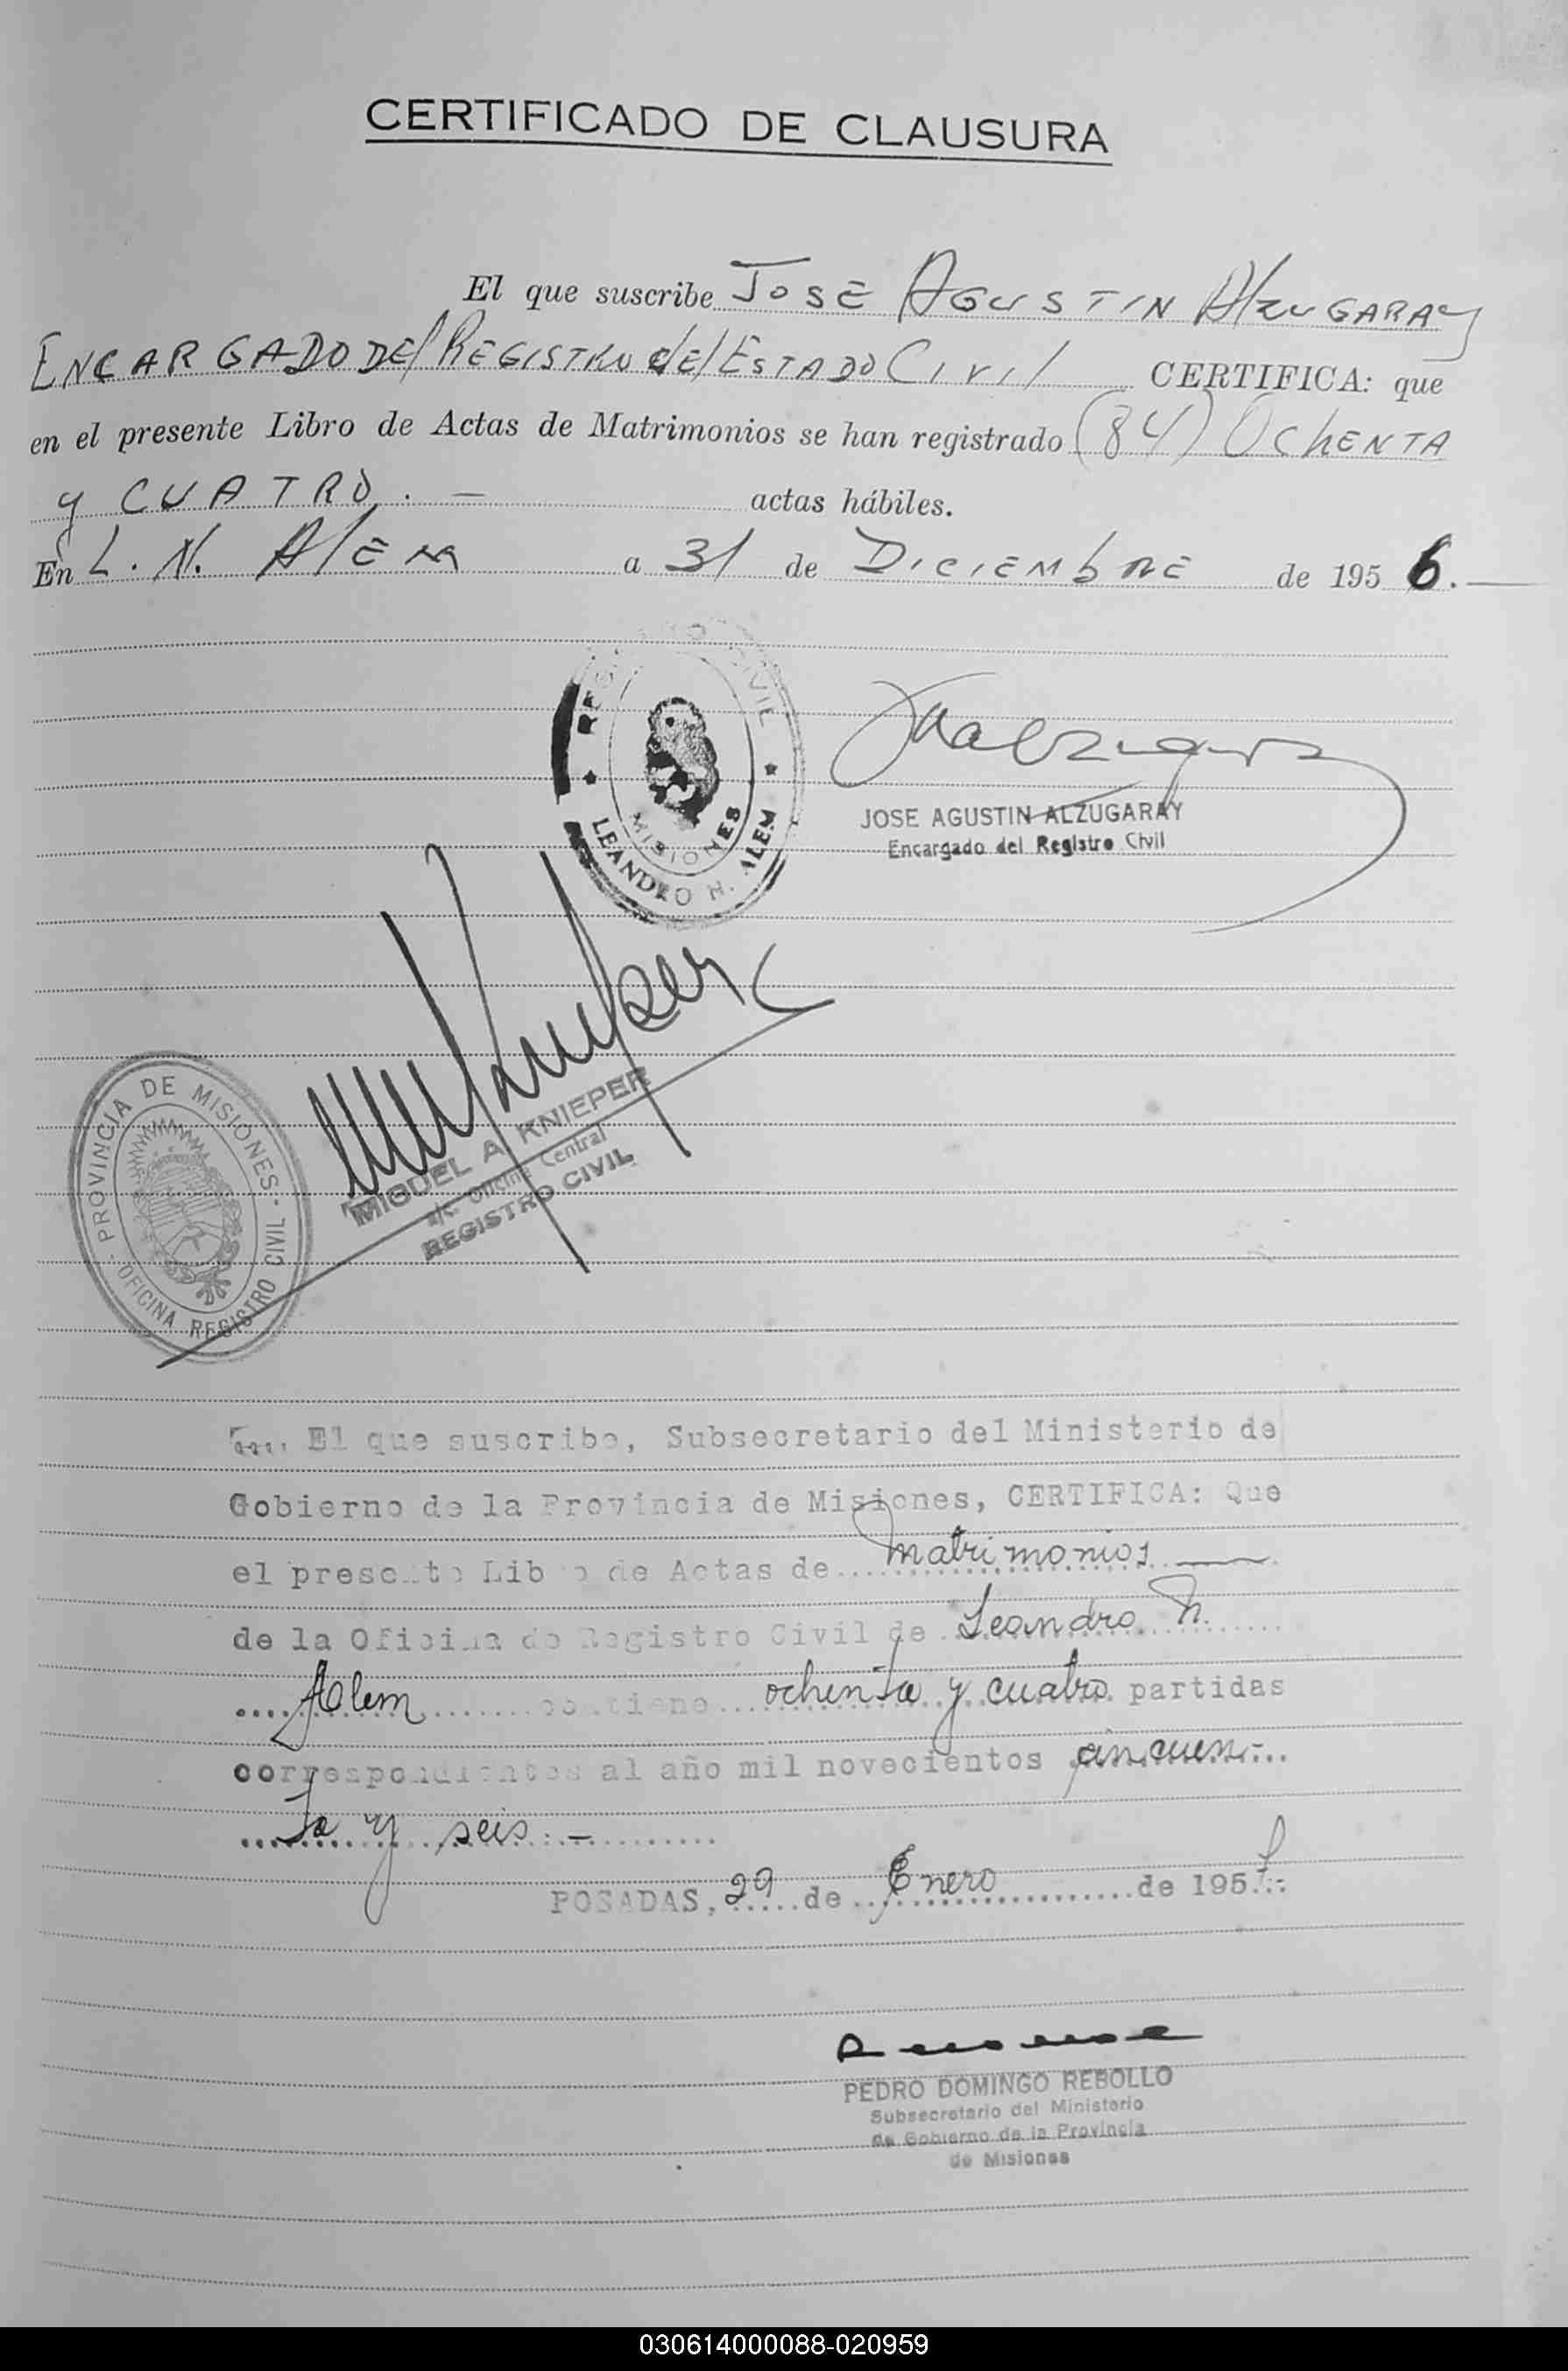 CERTIFICADO DE CLAUSURA
El que suscribe JOSE AGUSTIN AlZUGARAY
ENCARGADO DEl REGISTRO dEl ESTADO CIVIl CERTIFICA: que
en el presente Libro de Actas de Matrimonios se han registrado (84) OChENTA
y CUATRO. — actas hábiles.
En L. N. AlEM a 31 de DICIEMbRE de 1956. —
REGISTRO CIVIL
MISIONES
LEANDRO N. ALEM
JOSE AGUSTIN ALZUGARAY
Encargado del Registro Civil
PROVINCIA DE MISIONES
OFICINA REGISTRO CIVIL
MIGUEL A KNIEPER
a/c. Oficina Central
REGISTRO CIVIL
El que suscribe, Subsecretario del Ministerio de
Gobierno de la Provincia de Misiones, CERTIFICA: Que
el presente Libro de Actas de matrimonios —
de la Oficina de Registro Civil de Leandro N.
Alem contiene ochenta y cuatro partidas
correspondientes al año mil novecientos cincuen-
ta y seis.-
POSADAS, 29 de Enero de 195
PEDRO DOMINGO REBOLLO
Subsecretario del Ministerio
de Gobierno de la Provincia
de Misiones
030614000088-020959